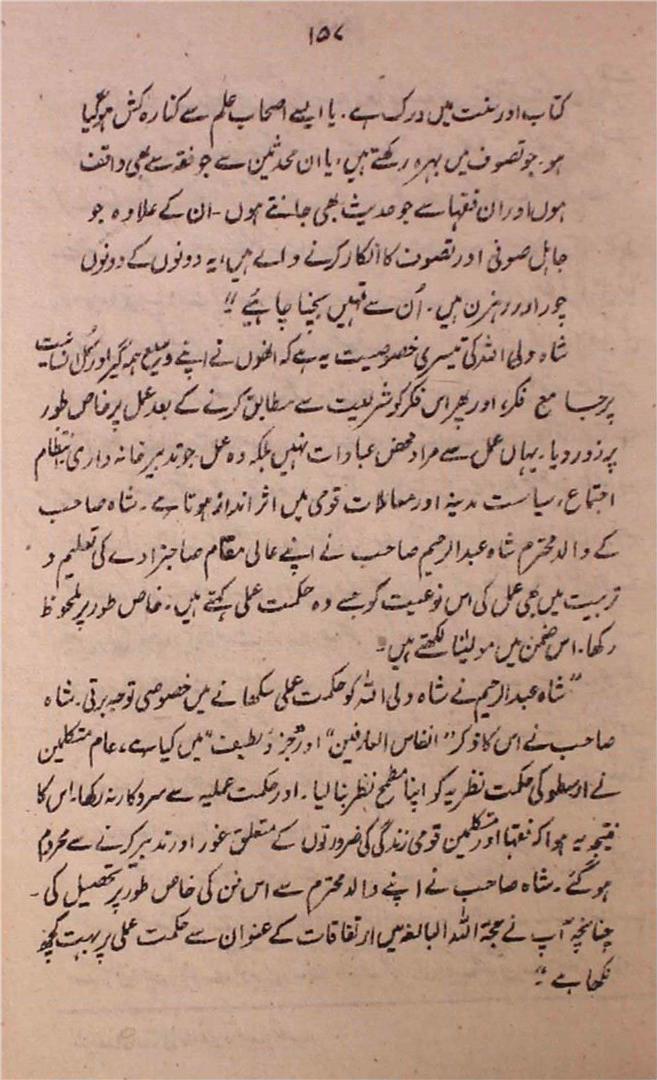 ۱۵۷
کتاب اور سنت میں درک ہے۔ یا ایسے اصحاب علم سے کنارہ کش ہو گیا
ہو۔ جو تصوف میں بہرہ رکھتے ہیں، یا ان محدثین سے جو فقہ سے بھی واقف
ہوں اور ان فقہا سے جو حدیث بھی جانتے ہوں۔ ان کے علاوہ جو
جاہل صوفی اور تصوف کا انکار کرنے والے ہیں، یہ دونوں کے دونوں
چور اور رہزن ہیں۔ اُن سے تمہیں بچنا چاہئے"
شاہ ولی اللہ کی تیسری خصوصیت یہ ہے کہ انھوں نے اپنے وسیع ہمہ گیر اور کُل انسانیت
پر جامع فکر، اور پھر اس فکر کو شریعت سے مطابق کرنے کے بعد عمل پر خاص طور
پر زور دیا۔ یہاں عمل سے مراد محض عبادات نہیں بلکہ وہ عمل جو تدبیر خانہ داری، انتظام
اجتماع، سیاست مدینہ اور معاملات قومی میں اثر انداز ہوتا ہے۔ شاہ صاحب
کے والد محترم شاہ عبدالرحیم صاحب نے اپنے عالی مقام صاحبزادے کی تعلیم و
تربیت میں بھی عمل کی اس نوعیت کو جسے وہ حکمت عملی کہتے ہیں۔ خاص طور پر ملحوظ
رکھا۔ اس ضمن میں مولیٰنا لکھتے ہیں۔
"شاہ عبدالرحیم نے شاہ ولی اللہ کو حکمت عملی سکھانے میں خصوصی توجہ برتی۔ شاہ
صاحب نے اس کا ذکر "انفاس العارفین" اور "جزء لطیف" میں کیا ہے، عام متکلمین
نے ارسطو کی حکمت نظریہ کو اپنا مطمح نظر بنا لیا۔ اور حکمت عملیہ سے سروکار نہ رکھا۔ اس کا
نتیجہ یہ ہوا کہ فقہا اور متکلمین قومی زندگی کی ضرورتوں کے متعلق غور اور تدبر کرنے سے محروم
ہو گئے۔ شاہ صاحب نے اپنے والد محترم سے اس فن کی خاص طور پر تحصیل کی۔
چنانچہ آپ نے حجۃ اللہ البالغہ میں ارتفاقات کے عنوان سے حکمت عملی پر بہت کچھ
لکھا ہے"